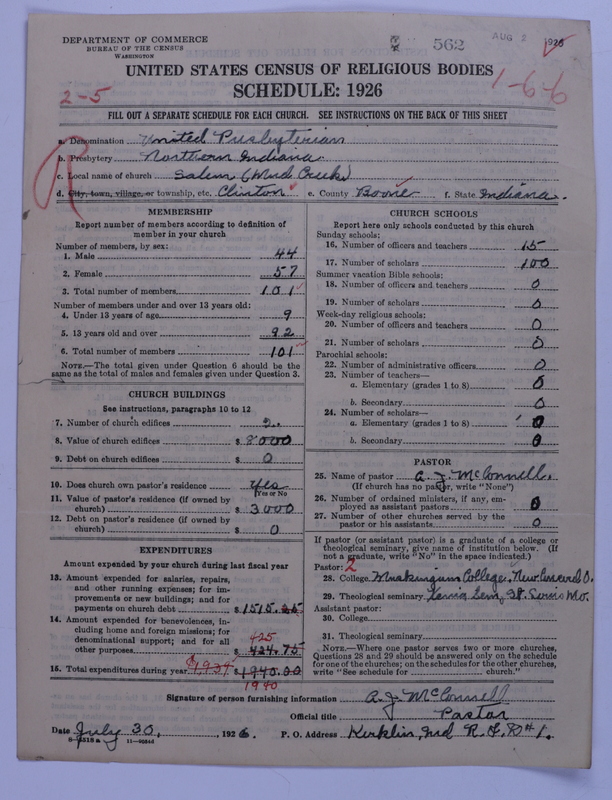 DEPARTMENT OF COMMERCE
BUREAU OF THE CENSUS
WASHINGTON
562
AUG 2 1926
UNITED STATES CENSUS OF RELIGIOUS BODIES
SCHEDULE: 1926
2-5
1-66
FILL OUT A SEPARATE SCHEDULE FOR EACH CHURCH. SEE INSTRUCTIONS ON THE BACK OF THIS SHEET
R
a. Denomination United Presbyterian
b. Presbytery Northern Indiana
c. Local name of church Salem (Mud Creek)
d. City, town, village, or township, etc. Clinton e. County Boone f. State Indiana.
MEMBERSHIP
Report number of members according to definition of
member in your church
Number of members, by sex:
1. Male 44
2. Female 57
3. Total number of members 101
Number of members under and over 13 years old:
4. Under 13 years of age 9
5. 13 years old and over 92
6. Total number of members 101
NOTE.—The total given under Question 6 should be the
same as the total of males and females given under Question 3.
CHURCH BUILDINGS
See instructions, paragraphs 10 to 12
7. Number of church edifices 2.
8. Value of church edifices $ 8000
9. Debt on church edifices $ 0
10. Does church own pastor's residence? Yes
(Yes or No)
11. Value of pastor's residence (if owned by
church) $ 3000
12. Debt on pastor's residence (if owned by
church) $ 0
EXPENDITURES
Amount expended by your church during last fiscal year
13. Amount expended for salaries, repairs,
and other running expenses; for im-
provements or new buildings; and for
payments on church debt $ 1515.25
14. Amount expended for benevolences, in-
cluding home and foreign missions; for
denominational support; and for all
other purposes $ 424.75
425
15. Total expenditures during year $1939 $ 1940.00
1940
CHURCH SCHOOLS
Report here only schools conducted by this church
Sunday schools:
16. Number of officers and teachers 15
17. Number of scholars 100
Summer vacation Bible schools:
18. Number of officers and teachers 0
19. Number of scholars 0
Week-day religious schools:
20. Number of officers and teachers 0
21. Number of scholars 0
Parochial schools:
22. Number of administrative officers 0
23. Number of teachers—
a. Elementary (grades 1 to 8) 0
b. Secondary 0
24. Number of scholars—
a. Elementary (grades 1 to 8) 0
b. Secondary 0
PASTOR
25. Name of pastor A. J. McConnell
(If church has no pastor, write "None")
26. Number of ordained ministers, if any, em-
ployed as assistant pastors 0
27. Number of other churches served by the
pastor or his assistants 0
If pastor (or assistant pastor) is a graduate of a college or
theological seminary, give name of institution below. (If
not a graduate, write "No" in the space indicated.)
Pastor: 2
28. College Muskingum College, New Concord O.
29. Theological seminary Xenia Sem, St. Louis Mo.
Assistant pastor:
30. College
31. Theological seminary
NOTE.—Where one pastor serves two or more churches,
Questions 28 and 29 should be answered only on the schedule
for one of the churches; on the schedules for the other churches,
write "See schedule for church."
Signature of person furnishing information A. J. McConnell
Official title Pastor
Date July 30, 1926. P. O. Address Kirklin, Ind R. F. D #1.